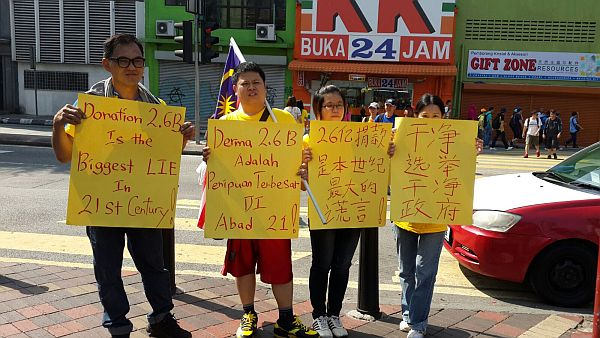 KK
BUKA 24 JAM
Pembaling Kristal & Aksesori
GIFT ZONE
NATURE'S BEST
RESOURCES
Donation 2.6B
Is the
Biggest LIE
In
21st Century!
Derma 2.6B
Adalah
Penipuan Terbesar
DI
Abad 21!
26亿捐款
是本世纪
最大的
谎言!
干净
选举
干净
政府